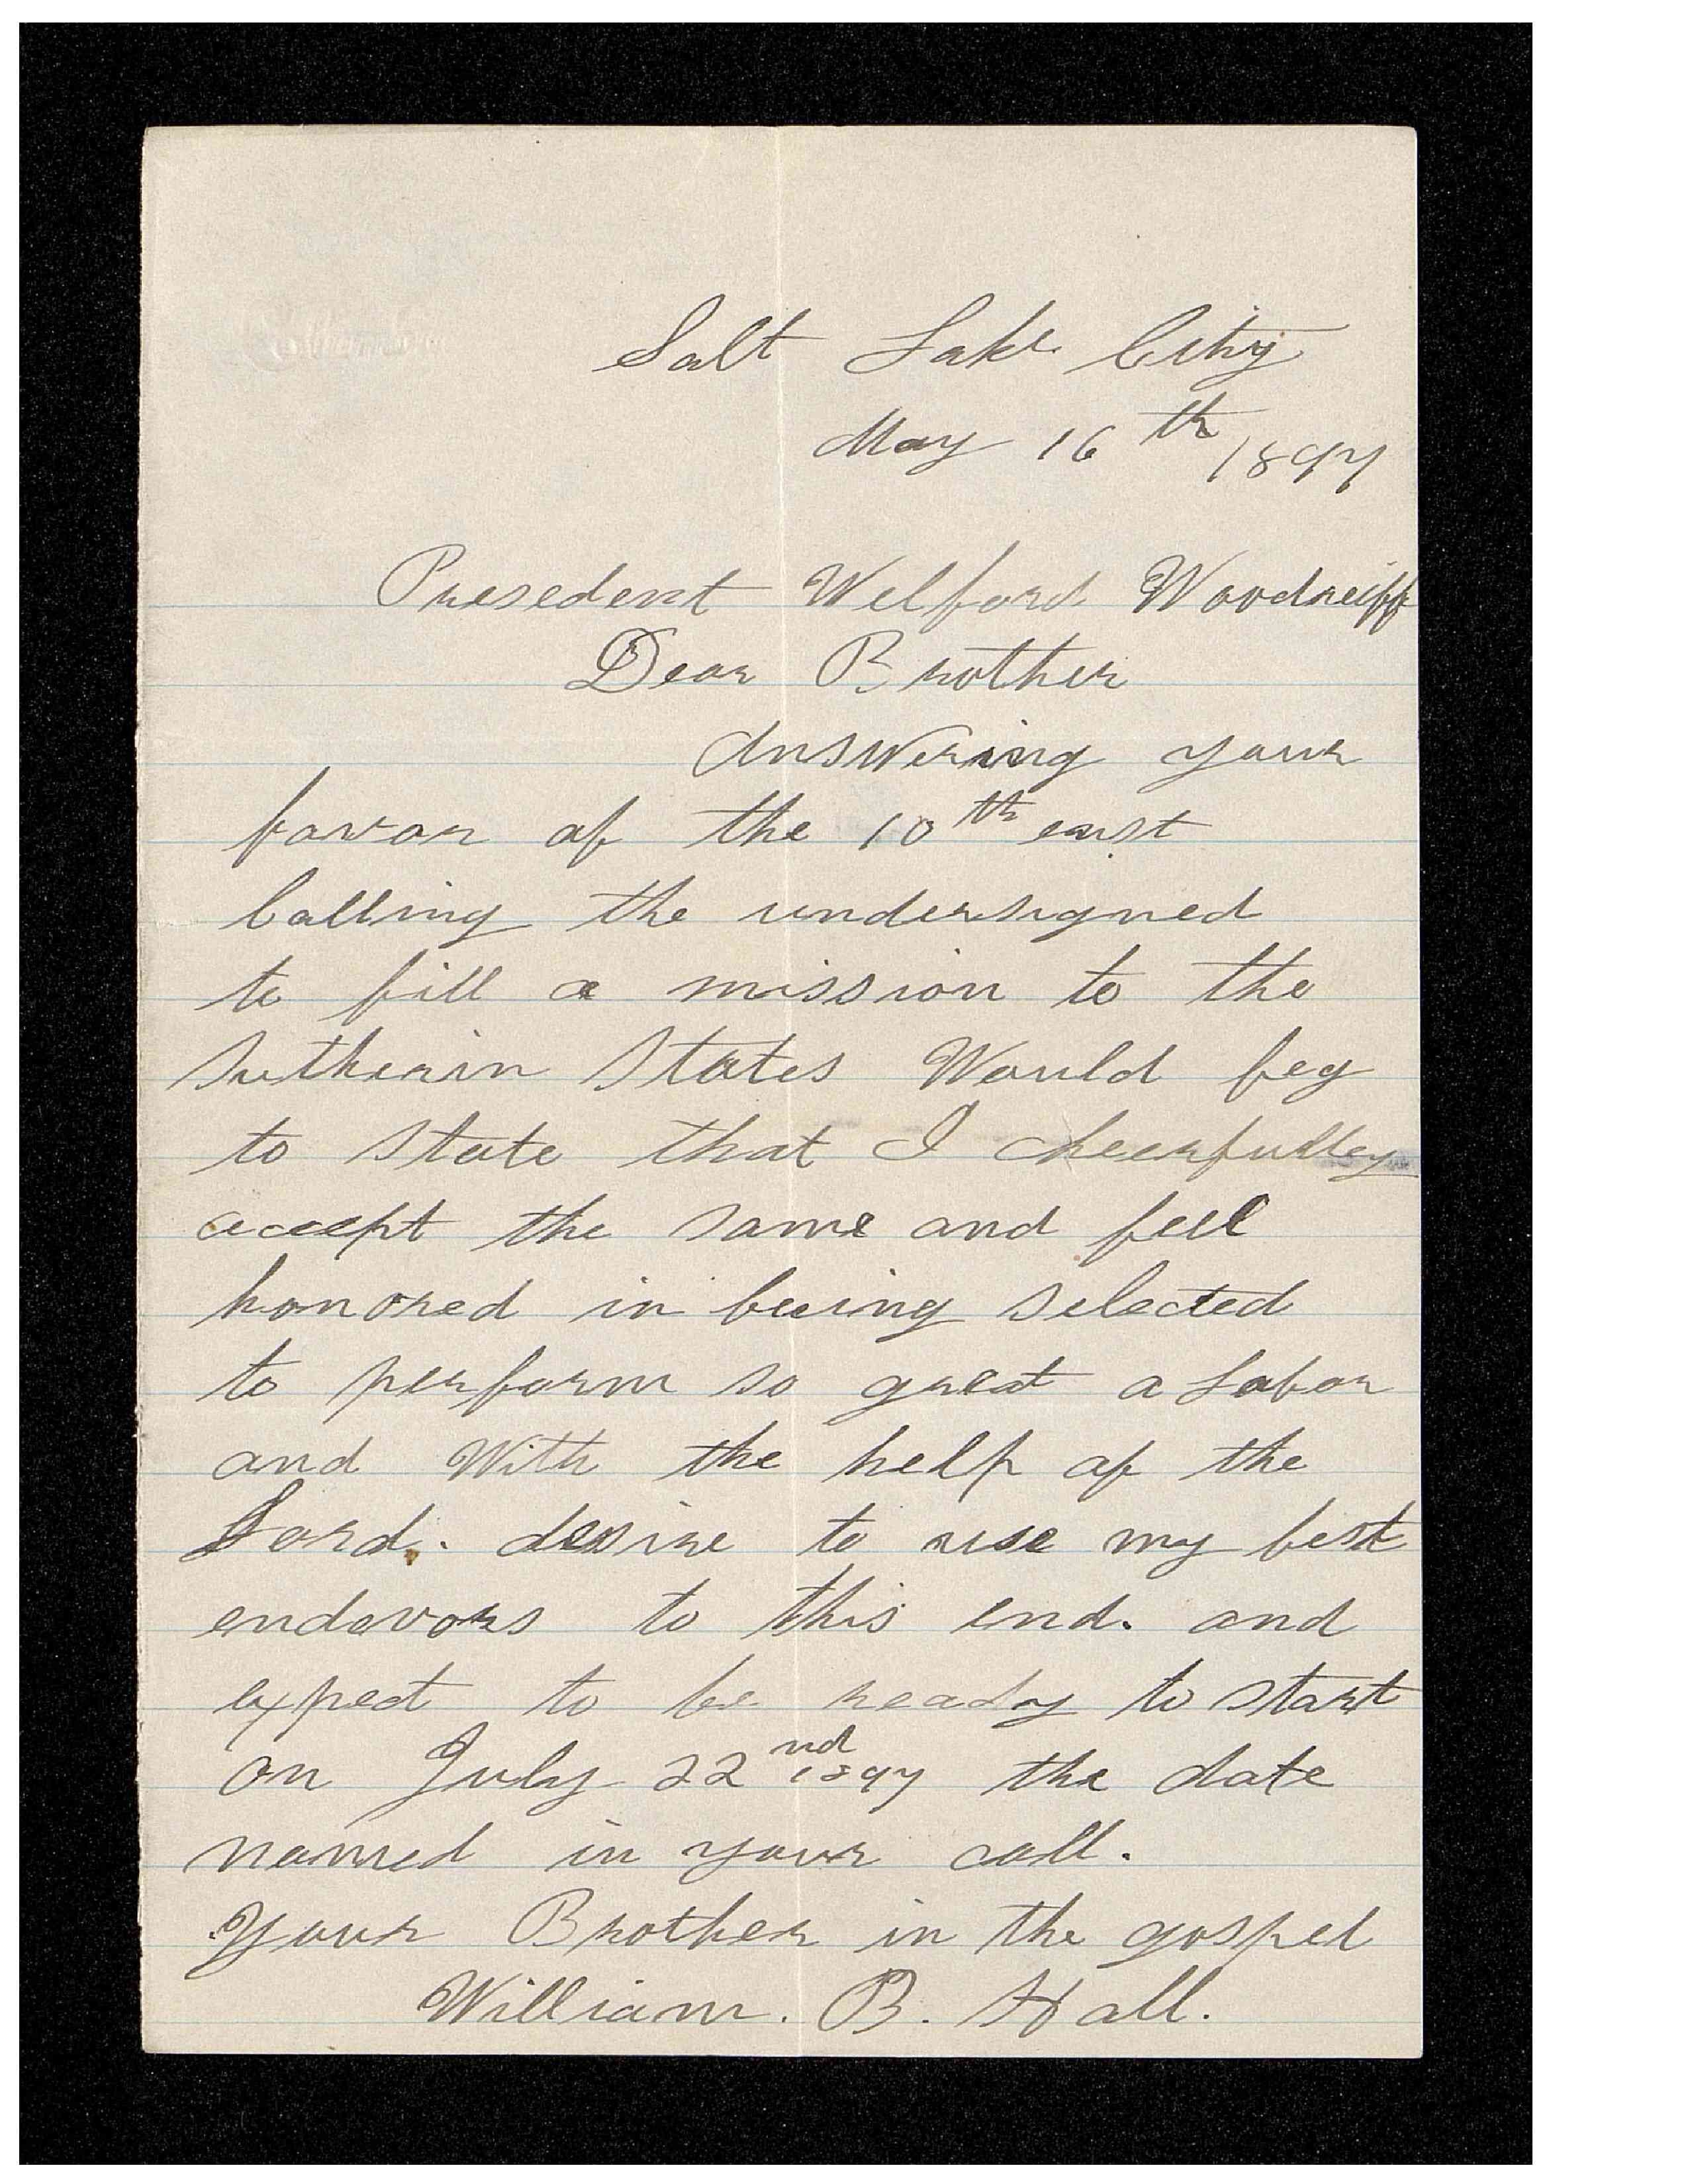 Salt Lake City
May 16th 1897
Presedent Welford Woodreiff
Dear Brother
Answering your
favor of the 10th enst
Calling the undersigned
to fill a mission to the
Sutherin States Would beg
to state that I cheerfulley
accept the same and feel
honored in being selected
to perform so great a Labor
and With the help of the
Lord. desire to use my best
endavors to this end. and
expect to be ready to start
on July 22nd 1897 the date
named in your call.
Your Brother in the gospel
William. B. Hall.